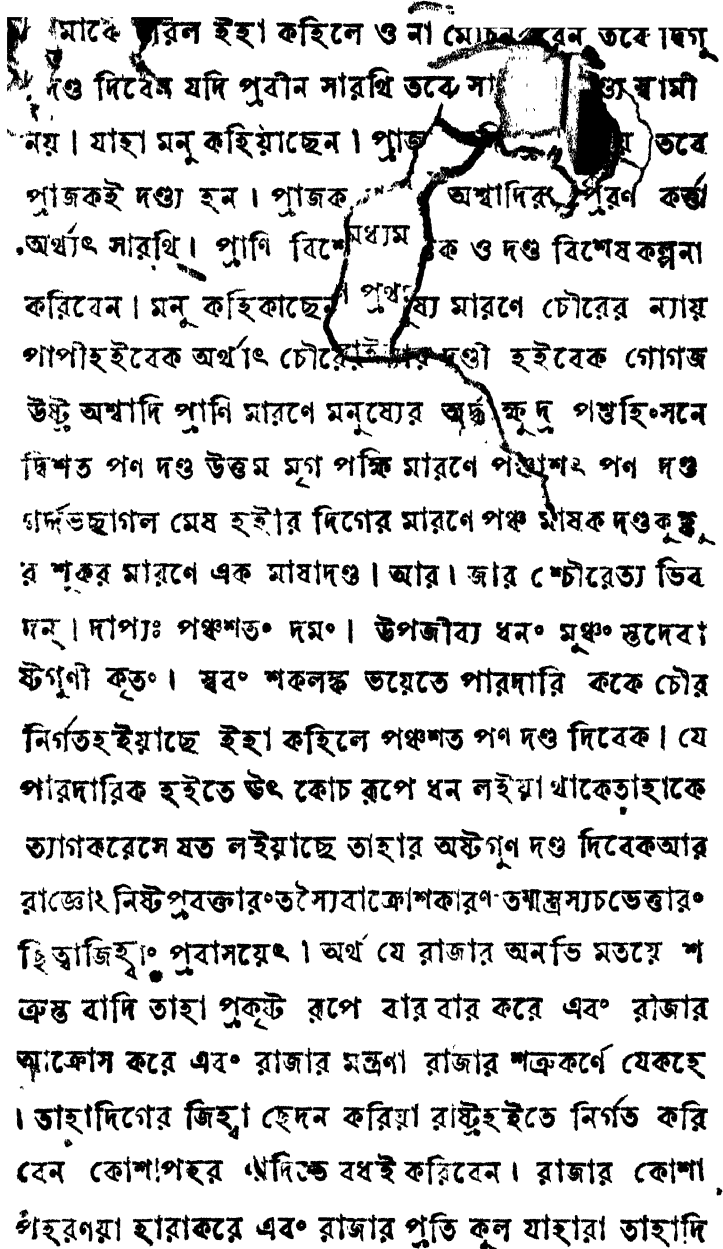 মাকে মারিল ইহা কহিলে ও না মোচন করেন তবে দ্বিগু
দণ্ড দিবেন যদি প্রবীন সারথি তবে সা ণ্ড্য স্বামী
নয়। যাহা মনু কহিয়াছেন। প্রাজ য় তবে
প্রাজকই দণ্ড্য হন। প্রাজক অশ্বাদির প্রেরণ কর্ত্তা
অর্থাৎ সারথি। প্রাণি বিশে মধ্যম ক ও দণ্ড বিশেষ কল্পনা
করিবেন। মনু কহিকাছেন ষ্য মারণে চৌরের ন্যায়
পাপীহইবেক অর্থাৎ দণ্ডী হইবেক গোগজ
উষ্ট্র অশ্বাদি প্রাণি মারণে মনুষ্যের অর্দ্ধ ক্ষুদ্র পশুহিংসনে
দ্বিশত পণ দণ্ড উত্তম মৃগ পক্ষি মারণে পঞ্চাশৎ পণ দণ্ড
গর্দ্দভছাগল মেষ হইার দিগের মারণে পঞ্চ মাষক দণ্ডকুক্কু
র শূকর মারণে এক মাষাদণ্ড। আর। জার শ্চৌরেত্য ভিব
দন্। দাপ্যঃ পঞ্চশতং দমং। উপজীব্য ধনং মুঞ্চং স্তদেবা
ষ্টগুণী কৃতং। স্ববং শকলঙ্ক ভয়েতে পারদারি ককে চৌর
নির্গতহইয়াছে ইহা কহিলে পঞ্চশত পণ দণ্ড দিবেক। যে
পারদারিক হইতে উৎ কোচ রূপে ধন লইয়াথাকেতাহাকে
ত্যাগকরেসে যত লইয়াছে তাহার অষ্টগুণ দণ্ড দিবেকআর
রাজ্ঞোংনিষ্টপ্রবক্তারংতস্যৈবাক্রোশকারণ তন্মন্ত্রস্যচভেত্তারং
ছিত্বাজিহ্বাং প্রবাসয়েৎ। অর্থ যে রাজার অনভি মতয়ে শ
ত্রুস্ত বাদি তাহা প্রকৃষ্ট রূপে বার বার করে এবং রাজার
আক্রোস করে এবং রাজার মন্ত্রণা রাজার শত্রুকর্ণে যেকহে
। তাহাদিগের জিহ্বা ছেদন করিয়া রাষ্ট্রহইতে নির্গত করি
বেন কোশাপহর বধই করিবেন। রাজার কোশা
পহরণয়া হারাকরে এবং রাজার প্রতি কূল যাহারা তাহাদি